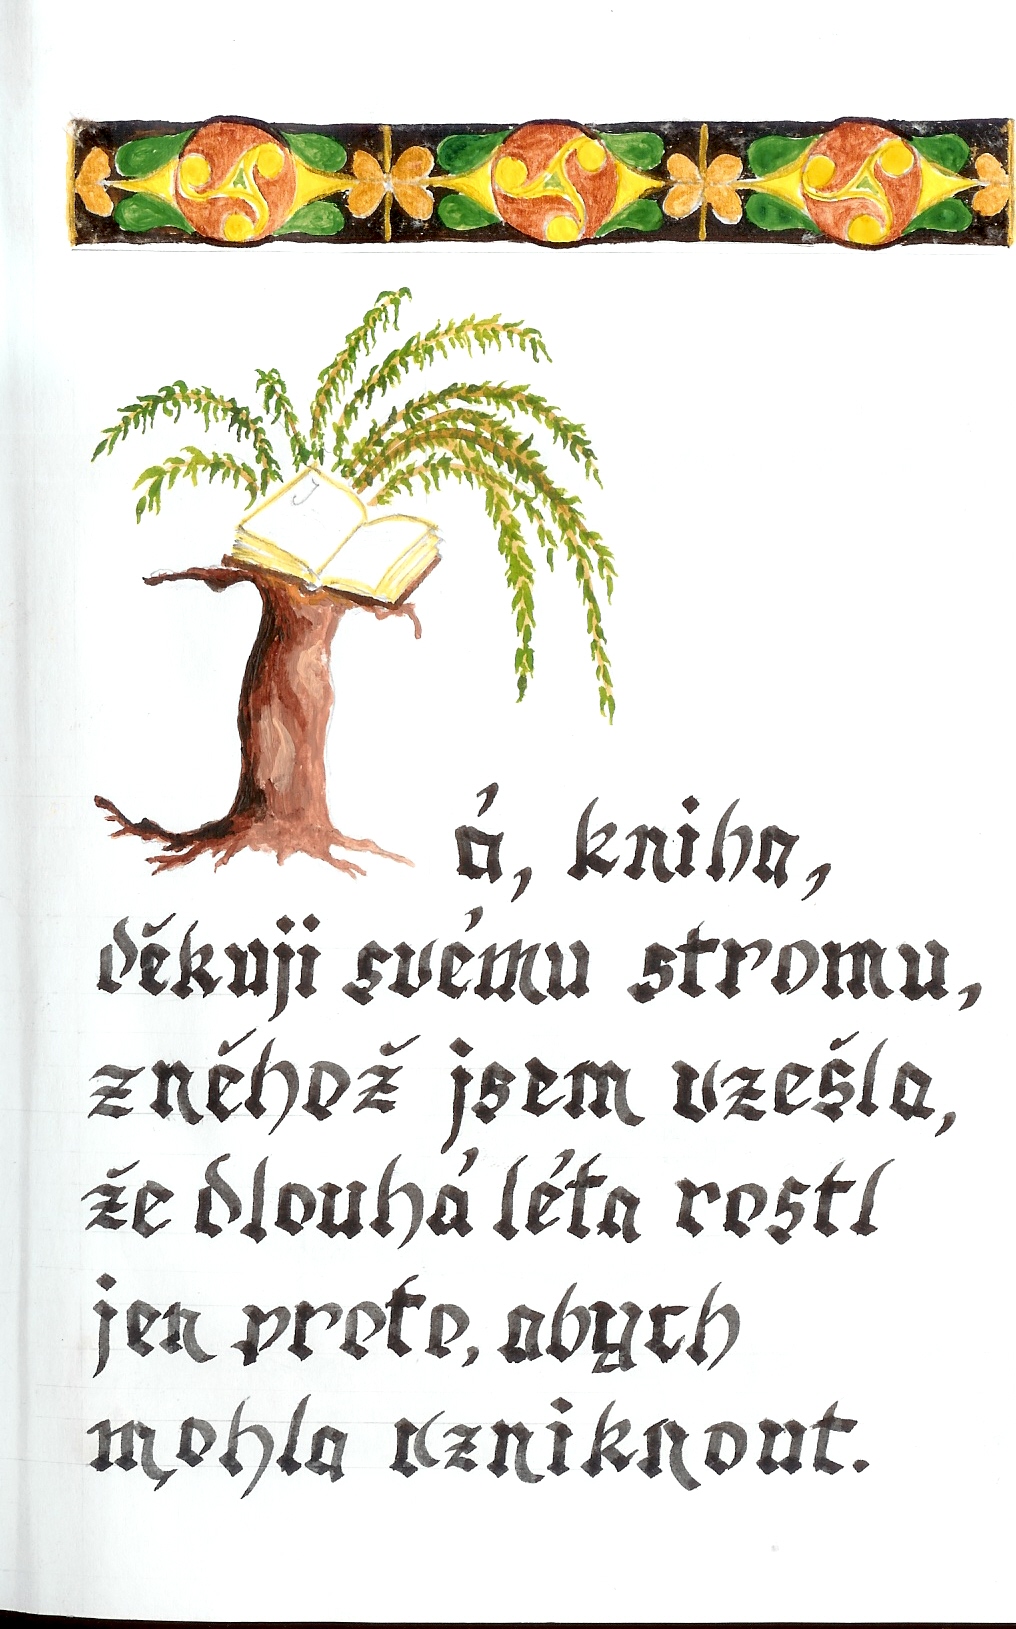 Já, kniha,
děkuji svému stromu,
z něhož jsem vzešla,
že dlouhá léta rostl
jen proto, abych
mohla vzniknout.